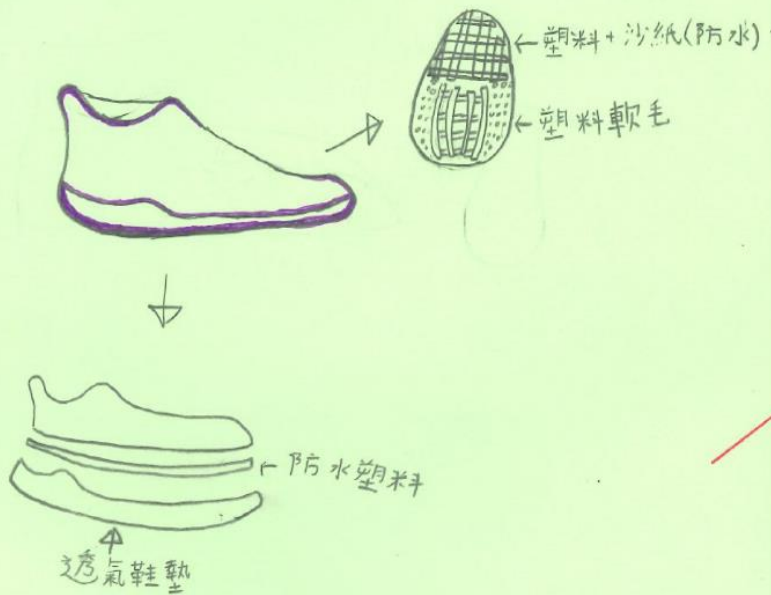 ←塑料+沙紙(防水)
←塑料軟毛
←防水塑料
透氣鞋墊